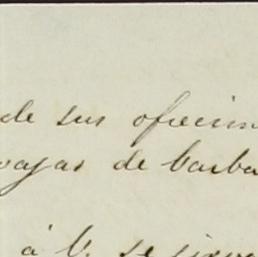 de sus ofrecim
vajas de barba
á V. se sirva